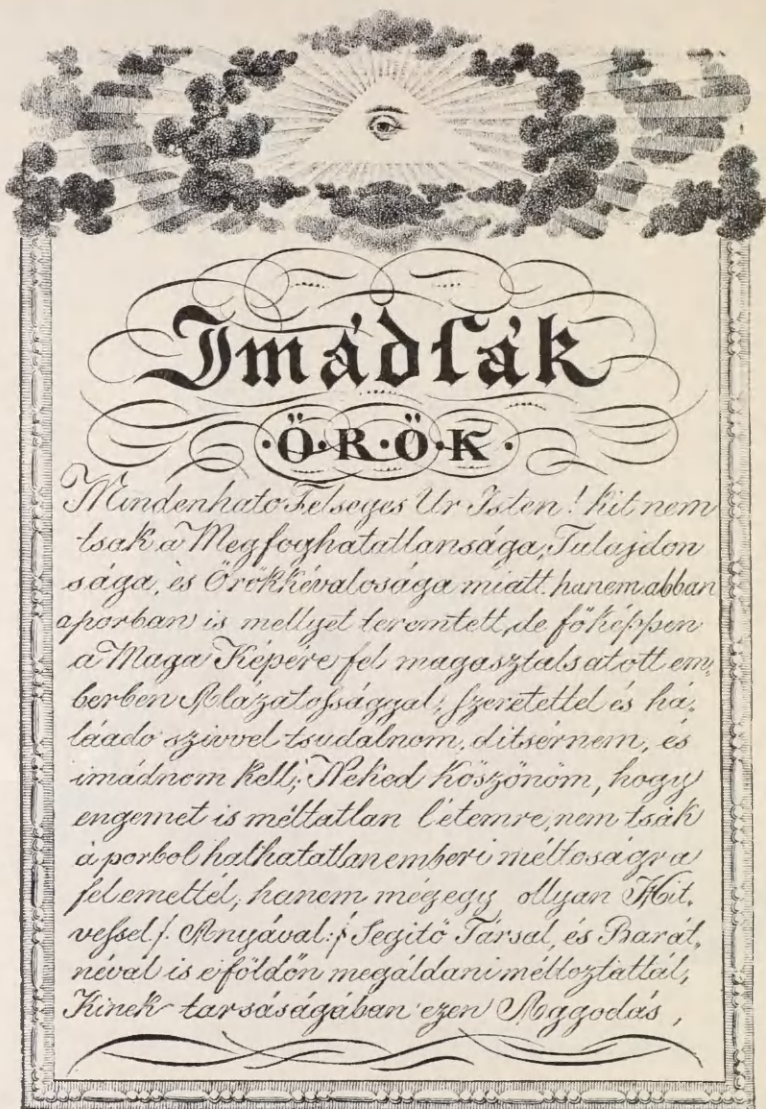 Imádſák
·Ö·R·Ö·K·
Mindenható Felseges Ur Isten! kit nem
tsak a Megfoghatatlansága, Tulajdon
sága, és Örökkévalosága miatt hanem abban
a porban is mellyet teremtett, de főképpen
a Maga Képére fel magasztalsatott em,
berben Alazatoſsággal, ſzeretettel és há,
láado szivvel tsudalnom, ditsérnem, és
imádnom kell; Neked köszönöm, hogy
engemet is méltatlan létemre, nem tsák
á porbol halhatatlan emberi méltoságra
fel emeltél, hanem még egy ollyan Hit,
veſsel /: Anyával :/ Segitő Társal, és Barát,
néval is e földön megáldani méltoztattál,
Kinek tarsáságában ezen Aggodás,